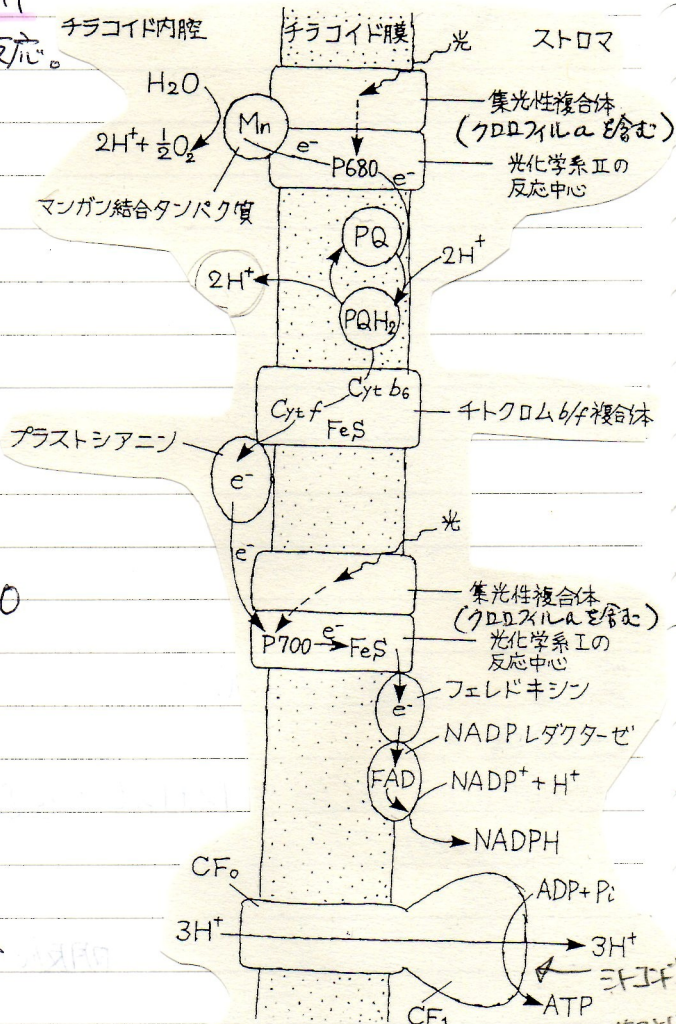 反応。
チラコイド内腔
チラコイド膜
ストロマ
光
H₂O
2H⁺+½O₂
Mn
e⁻
P680
e⁻
集光性複合体
(クロロフィルaを含む)
光化学系Ⅱの
反応中心
マンガン結合タンパク質
PQ
2H⁺
2H⁺
PQH₂
Cyt b₆
Cyt f
FeS
チトクロムb/f複合体
プラストシアニン
e⁻
e⁻
光
集光性複合体
(クロロフィルaを含む)
P700
e⁻
FeS
光化学系Ⅰの
反応中心
e⁻
フェレドキシン
NADPレダクターゼ
FAD
NADP⁺+H⁺
NADPH
CF₀
ADP+Pi
3H⁺
3H⁺
ATP
CF₁